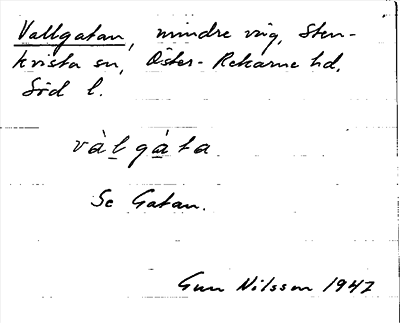 Vallgatan, mindre väg, Sten-
kvista sn, Öster-Rekarne hd,
Söd l.
vàlgàta
Se Gatan.
Gun Nilsson 1947